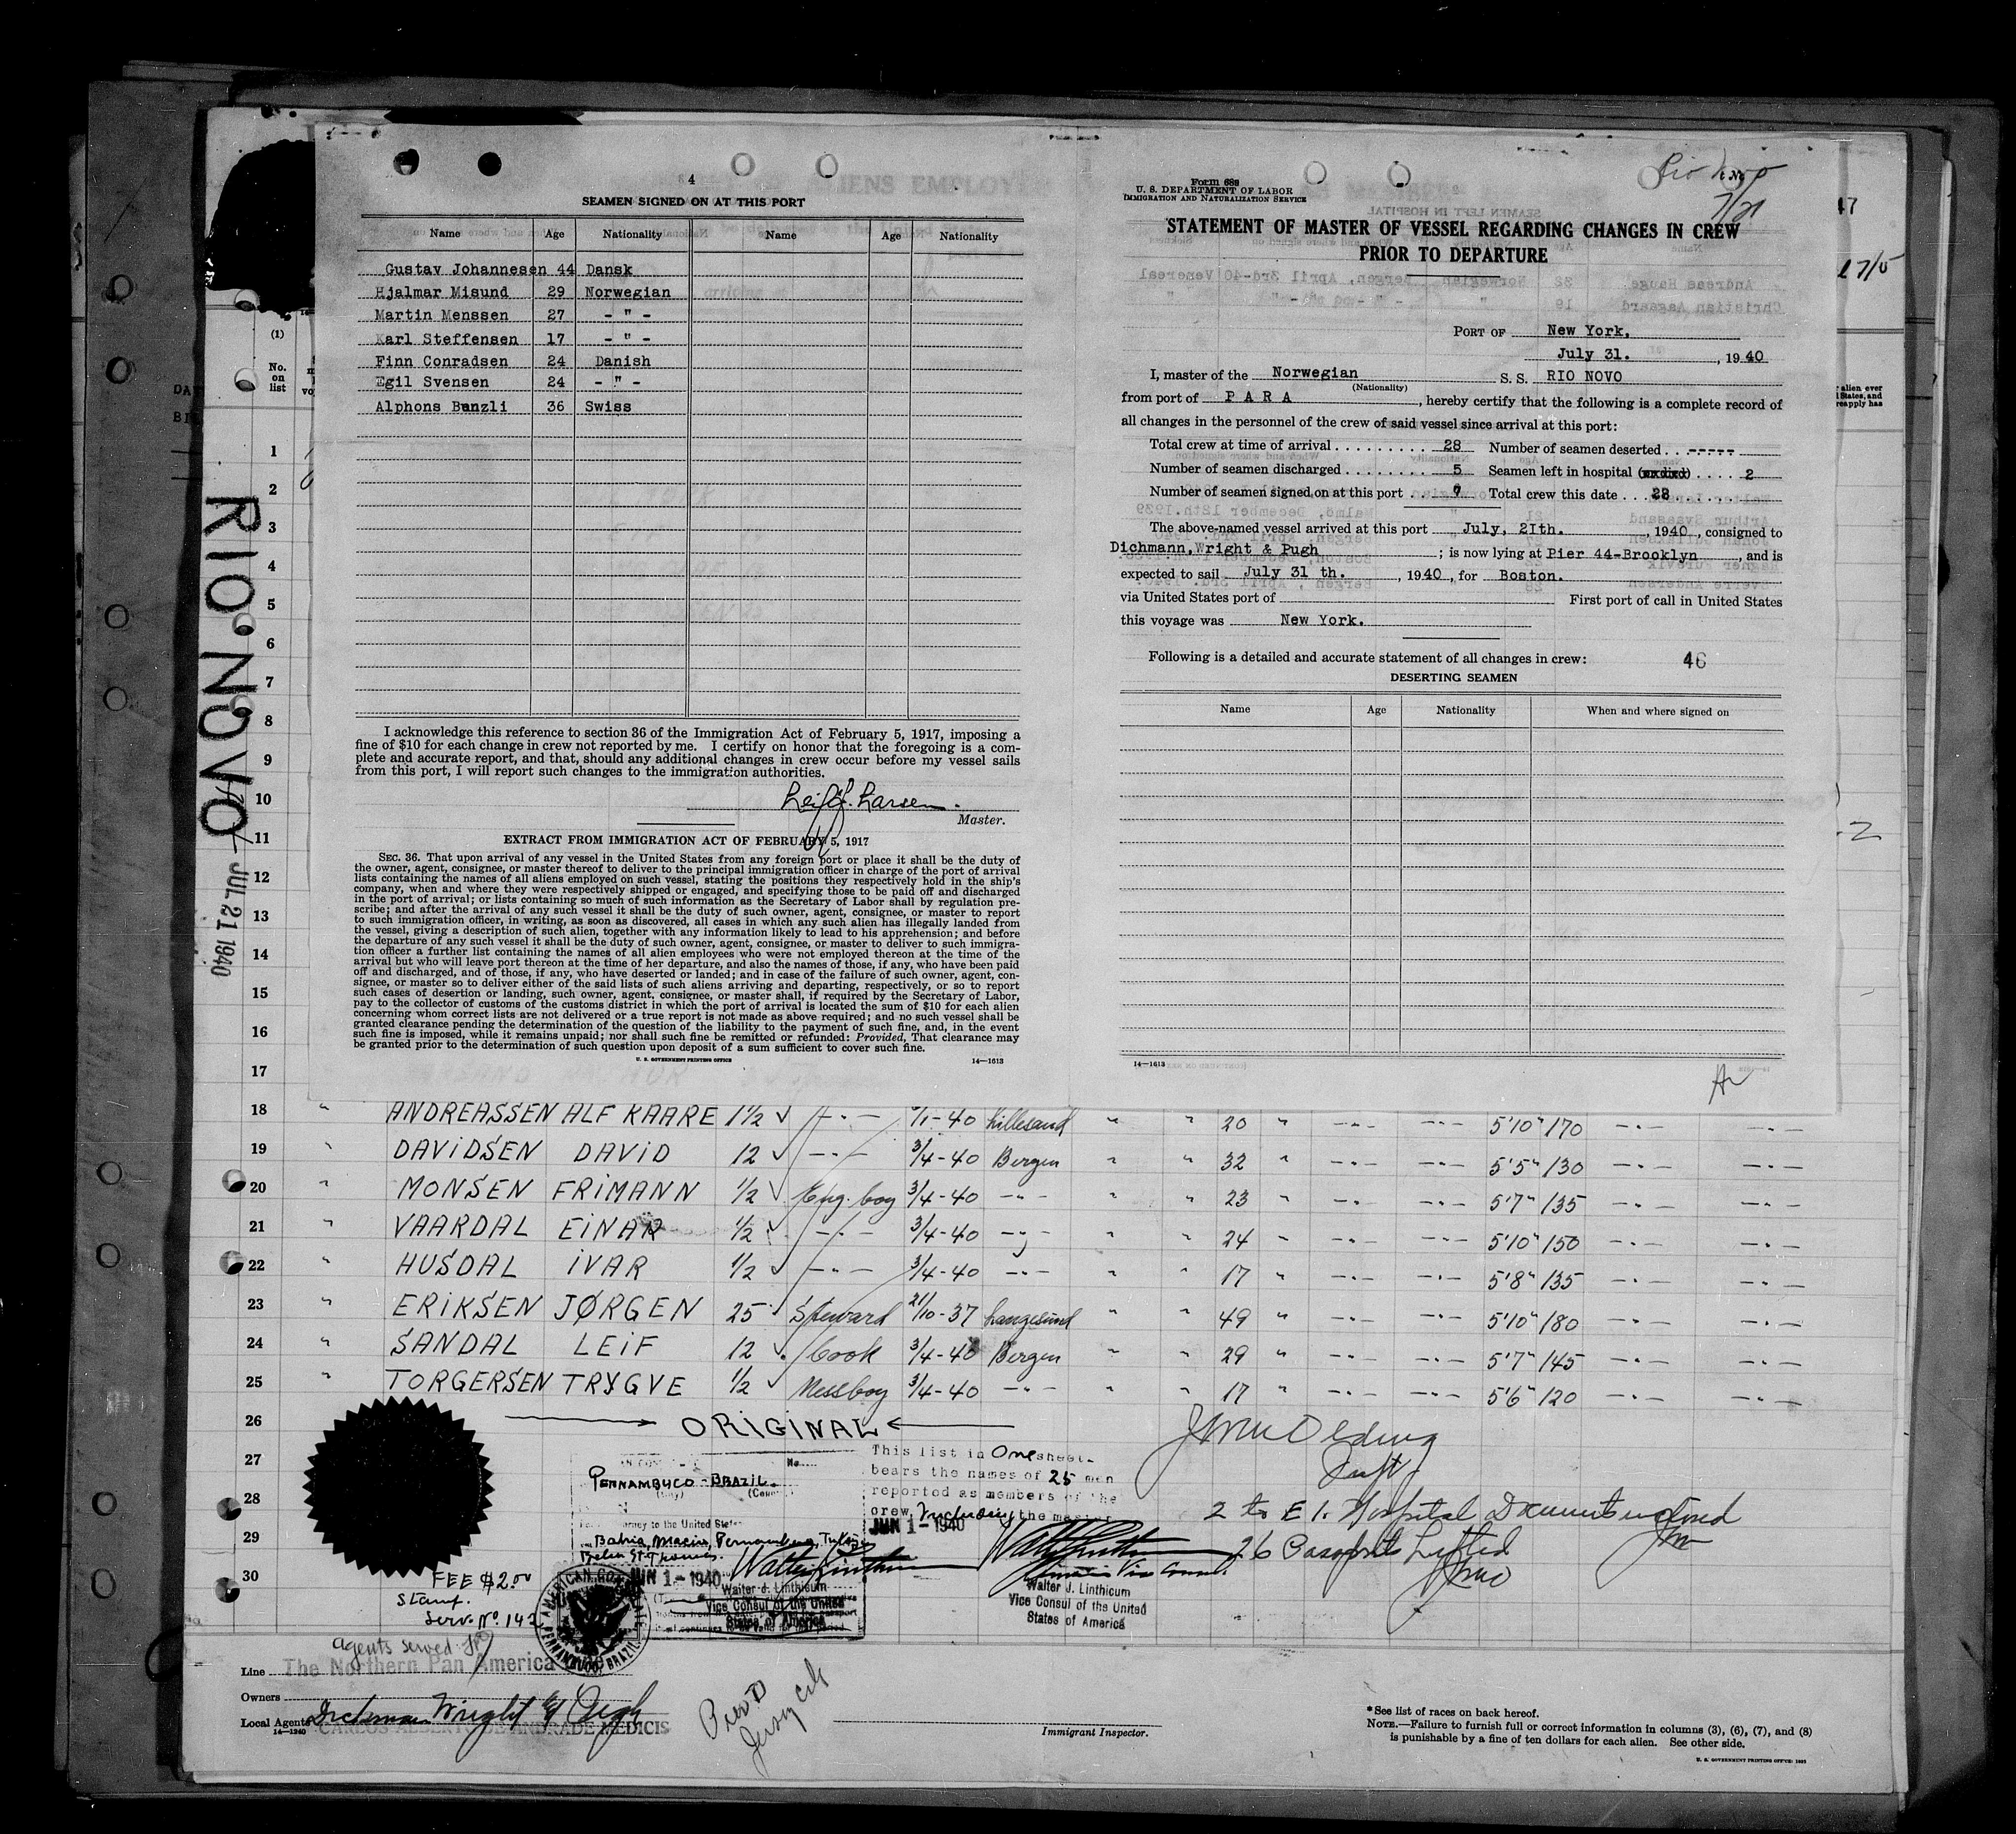 4
SEAMEN SIGNED ON AT THIS PORT
Name Age Nationality Name Age Nationality
Gustav Johannesen 44 Dansk
Hjalmar Misund 29 Norwegian
Martin Menssen 27 - " -
Karl Steffensen 17 - " -
Finn Conradsen 24 Danish
Egil Svensen 24 - " -
Alphons Bunzli 36 Swiss
I acknowledge this reference to section 36 of the Immigration Act of February 5, 1917, imposing a
fine of $10 for each change in crew not reported by me. I certify on honor that the foregoing is a com-
plete and accurate report, and that, should any additional changes in crew occur before my vessel sails
from this port, I will report such changes to the immigration authorities.
Larsen.
Master.
EXTRACT FROM IMMIGRATION ACT OF FEBRUARY 5, 1917
SEC. 36. That upon arrival of any vessel in the United States from any foreign port or place it shall be the duty of
the owner, agent, consignee, or master thereof to deliver to the principal immigration officer in charge of the port of arrival
lists containing the names of all aliens employed on such vessel, stating the positions they respectively hold in the ship's
company, when and where they were respectively shipped or engaged, and specifying those to be paid off and discharged
in the port of arrival; or lists containing so much of such information as the Secretary of Labor shall by regulation pre-
scribe; and after the arrival of any such vessel it shall be the duty of such owner, agent, consignee, or master to report
to such immigration officer, in writing, as soon as discovered, all cases in which any such alien has illegally landed from
the vessel, giving a description of such alien, together with any information likely to lead to his apprehension; and before
the departure of any such vessel it shall be the duty of such owner, agent, consignee, or master to deliver to such immigra-
tion officer a further list containing the names of all alien employees who were not employed thereon at the time of the
arrival but who will leave port thereon at the time of her departure, and also the names of those, if any, who have been paid
off and discharged, and of those, if any, who have deserted or landed; and in case of the failure of such owner, agent, con-
signee, or master so to deliver either of the said lists of such aliens arriving and departing, respectively, or so to report
such cases of desertion or landing, such owner, agent, consignee, or master shall, if required by the Secretary of Labor,
pay to the collector of customs of the customs district in which the port of arrival is located the sum of $10 for each alien
concerning whom correct lists are not delivered or a true report is not made as above required; and no such vessel shall be
granted clearance pending the determination of the question of the liability to the payment of such fine, and, in the event
such fine is imposed, while it remains unpaid; nor shall such fine be remitted or refunded: Provided, That clearance may
be granted prior to the determination of such question upon deposit of a sum sufficient to cover such fine.
U. S. GOVERNMENT PRINTING OFFICE 14—1613
Form 689
U. S. DEPARTMENT OF LABOR
IMMIGRATION AND NATURALIZATION SERVICE
7/21
STATEMENT OF MASTER OF VESSEL REGARDING CHANGES IN CREW
PRIOR TO DEPARTURE
PORT OF New York,
July 31. , 1940
I, master of the Norwegian S. S. RIO NOVO
(Nationality)
from port of P A R A , hereby certify that the following is a complete record of
all changes in the personnel of the crew of said vessel since arrival at this port:
Total crew at time of arrival 28 Number of seamen deserted -----
Number of seamen discharged 5 Seamen left in hospital (or died) 2
Number of seamen signed on at this port 7 Total crew this date 28
The above-named vessel arrived at this port July, 21th. , 1940 , consigned to
Dichmann, Wright & Pugh ; is now lying at Pier 44-Brooklyn , and is
expected to sail July 31 th. , 1940 , for Boston.
via United States port of First port of call in United States
this voyage was New York.
Following is a detailed and accurate statement of all changes in crew: 46
DESERTING SEAMEN
Name Age Nationality When and where signed on
14—1613
RIO NOVO
JUL 21 1940
(1)
No. on list
1
2
3
4
5
6
7
8
9
10
11
12
13
14
15
16
17
18 " ANDREASSEN ALF KAARE 1½ -"- 1/1-40 Lillesand " " 20 " -"- -"- 5'10" 170 -"- -"-
19 " DAVIDSEN DAVID 12 -"- 3/4-40 Bergen " " 32 " -"- -"- 5'5" 130 -"- -"-
20 " MONSEN FRIMANN 1/2 Eng. boy 3/4-40 -"- " " 23 " -"- -"- 5'7" 135 -"- -"-
21 " VAARDAL EINAR 1/2 -"- 3/4-40 -"- " " 24 " -"- -"- 5'10" 150 -"- -"-
22 " HUSDAL IVAR 1/2 -"- 3/4-40 -"- " " 17 " -"- -"- 5'8" 135 -"- -"-
23 " ERIKSEN JØRGEN 25 Steward 21/10-37 Langesund " " 49 " -"- -"- 5'10" 180 -"- -"-
24 " SANDAL LEIF 12 Cook 3/4-40 Bergen " " 29 " -"- -"- 5'7" 145 -"- -"-
25 " TORGERSEN TRYGVE 1/2 Messboy 3/4-40 -"- " " 17 " -"- -"- 5'6" 120 -"- -"-
26 ORIGINAL
27
28
29
30
PERNAMBUCO-BRAZIL.
This list in One sheet
bears the names of 25 men
reported as members of the
crew, including the master
JUN 1 - 1940
Bahia, Maceio, Pernambuco,
Belem St. Thomas.
JUN 1 - 1940
Walter J. Linthicum
Vice Consul of the United
States of America
Walter J. Linthicum
Vice Consul of the United
States of America
AMERICAN CONSULATE PERNAMBUCO, BRAZIL
FEE $2.00
Stamp.
Serv. No. 142
2 to E I. Hospital Documents
26 Passports Lifted
Agents served
Line The Northern Pan America
Owners
Local Agents Dichman Wright & Pugh
ANDRADE MEDICIS
14—1240
Immigrant Inspector.
*See list of races on back hereof.
NOTE.—Failure to furnish full or correct information in columns (3), (6), (7), and (8)
is punishable by a fine of ten dollars for each alien. See other side.